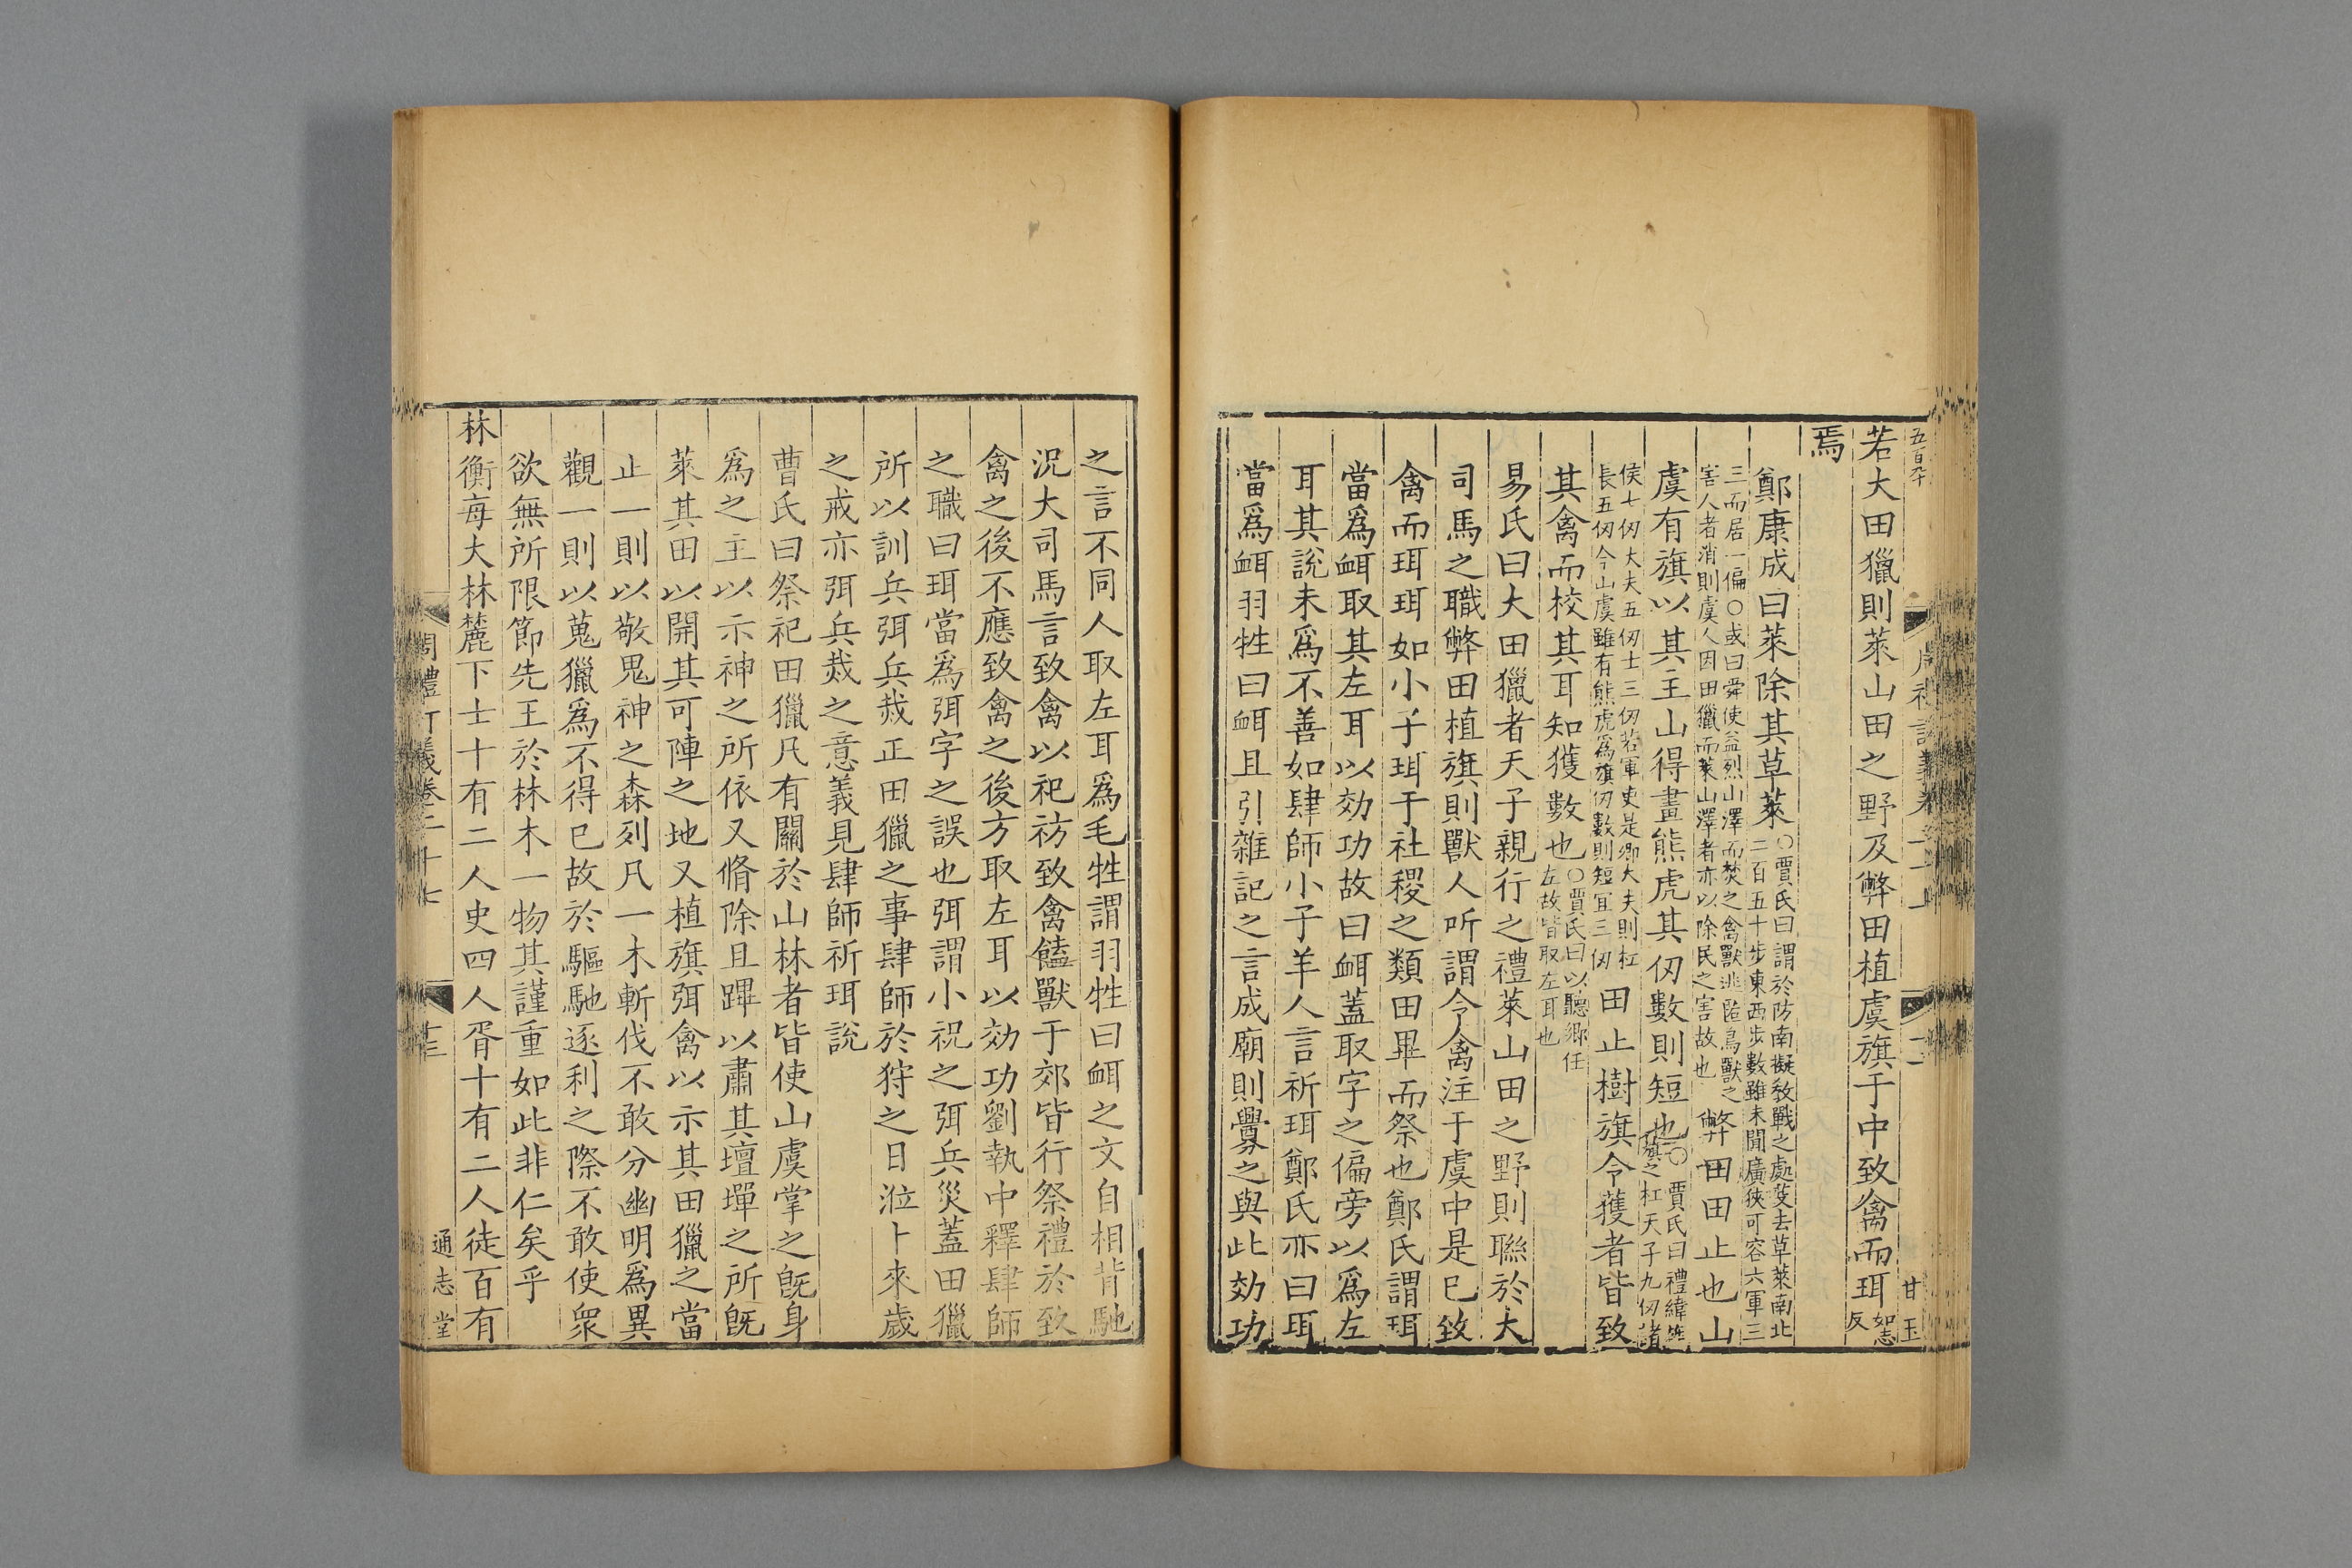 若大田獵則萊山田之野及弊田植虞旗于中致禽而珥如志反
焉
鄭康成曰萊除其草萊○賈氏曰謂於防南擬教戰之處芟去草萊南北二百五十步東西步數雖未聞廣狹可容六軍三
三而居一偏○或曰舜使益烈山澤而焚之禽獸逃匿鳥獸之害人者消則虞人因田獵而萊山澤者亦以除民之害故也弊田田止也山
虞有旗以其主山得畫熊虎其仞數則短也○賈氏曰禮緯旌旗之杠天子九仞諸
侯七仞大夫五仞士三仞若軍吏是卿大夫則杠長五仞今山虞雖有熊虎爲旗仞數則短宜三仞田止樹旗令獲者皆致
其禽而校其耳知獲數也○賈氏曰以聽鄉任左故皆取左耳也
易氏曰大田獵者天子親行之禮萊山田之野則聯於大
司馬之職弊田植旗則獸人所謂令禽注于虞中是巳致
禽而珥珥如小子珥于社稷之類田畢而祭也鄭氏謂珥
當爲衈取其左耳以効功故曰衈蓋取字之偏旁以爲左
耳其說未爲不善如肆師小子羊人言祈珥鄭氏亦曰珥
當爲衈羽牲曰衈且引雜記之言成廟則釁之與此効功
之言不同人取左耳爲毛牲謂羽牲曰衈之文自相背馳
況大司馬言致禽以祀祊致禽饁獸于郊皆行祭禮於致
禽之後不應致禽之後方取左耳以効功劉執中釋肆師
之職曰珥當爲弭字之誤也弭謂小祝之弭兵災蓋田獵
所以訓兵弭兵烖正田獵之事肆師於狩之日涖卜來歲
之戒亦弭兵烖之意義見肆師祈珥說
曹氏曰祭祀田獵凡有關於山林者皆使山虞掌之旣身
爲之主以示神之所依又脩除且蹕以肅其壇墠之所旣
萊其田以開其可陣之地又植旗弭禽以示其田獵之當
止一則以敬鬼神之森列凡一木斬伐不敢分幽明爲異
觀一則以蒐獵爲不得已故於驅馳逐利之際不敢使衆
欲無所限節先王於林木一物其謹重如此非仁矣乎
林衡每大林麓下士十有二人史四人胥十有二人徒百有
周禮訂義卷二十七
通志堂